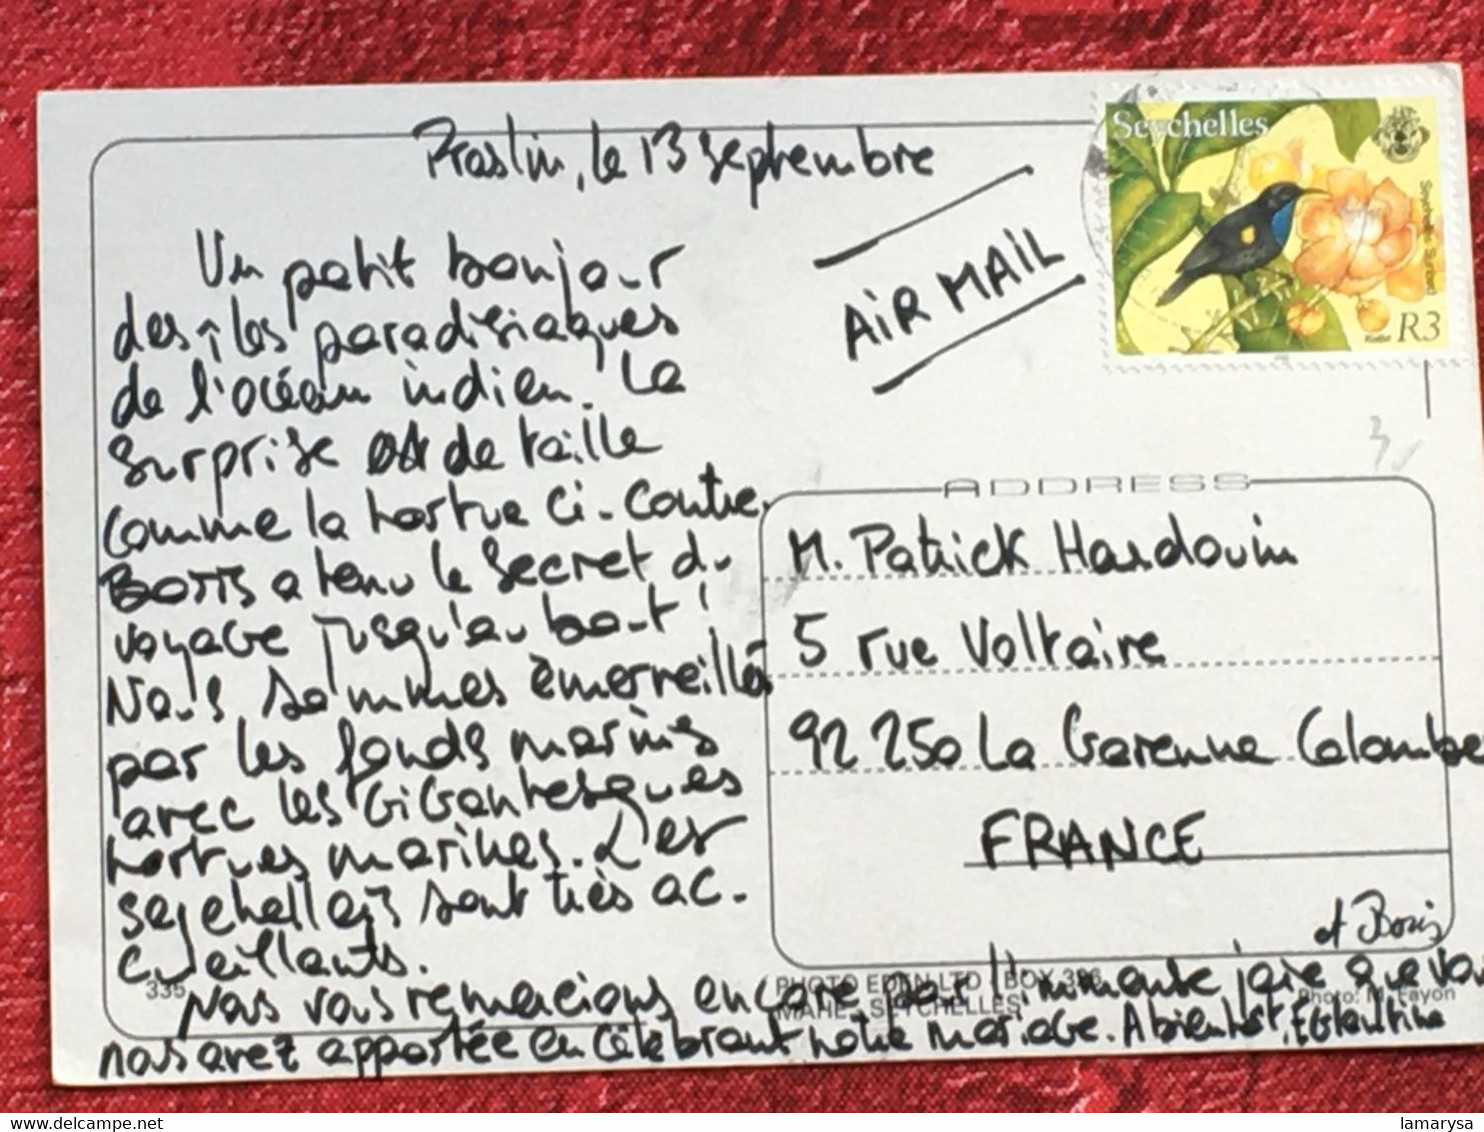 Praslin, le 13 septembre
Un petit bonjour
des îles paradisiaques
de l'océan indien. La
surprise est de taille
comme la tortue ci-contre.
Boris a tenu le secret du
voyage jusqu'au bout !
Nous sommes émerveillés
par les fonds marins
avec les gigantesques
tortues marines. Les
seychellois sont très ac-
cueillants.
Nous vous remercions encore par l'immense joie que vous
nous avez apportée en célébrant notre mariage. A bientôt, Eglantine
et Boris
AIR MAIL
Seychelles
Seychelles Sunbird
R3
ADDRESS
M. Patrick Hardouin
5 rue Voltaire
92 250 La Garenne Colombe
FRANCE
335
PHOTO EDEN LTD BOX 336
MAHE SEYCHELLES
Photo: M. Fayon
delcampe.net
lamarysa